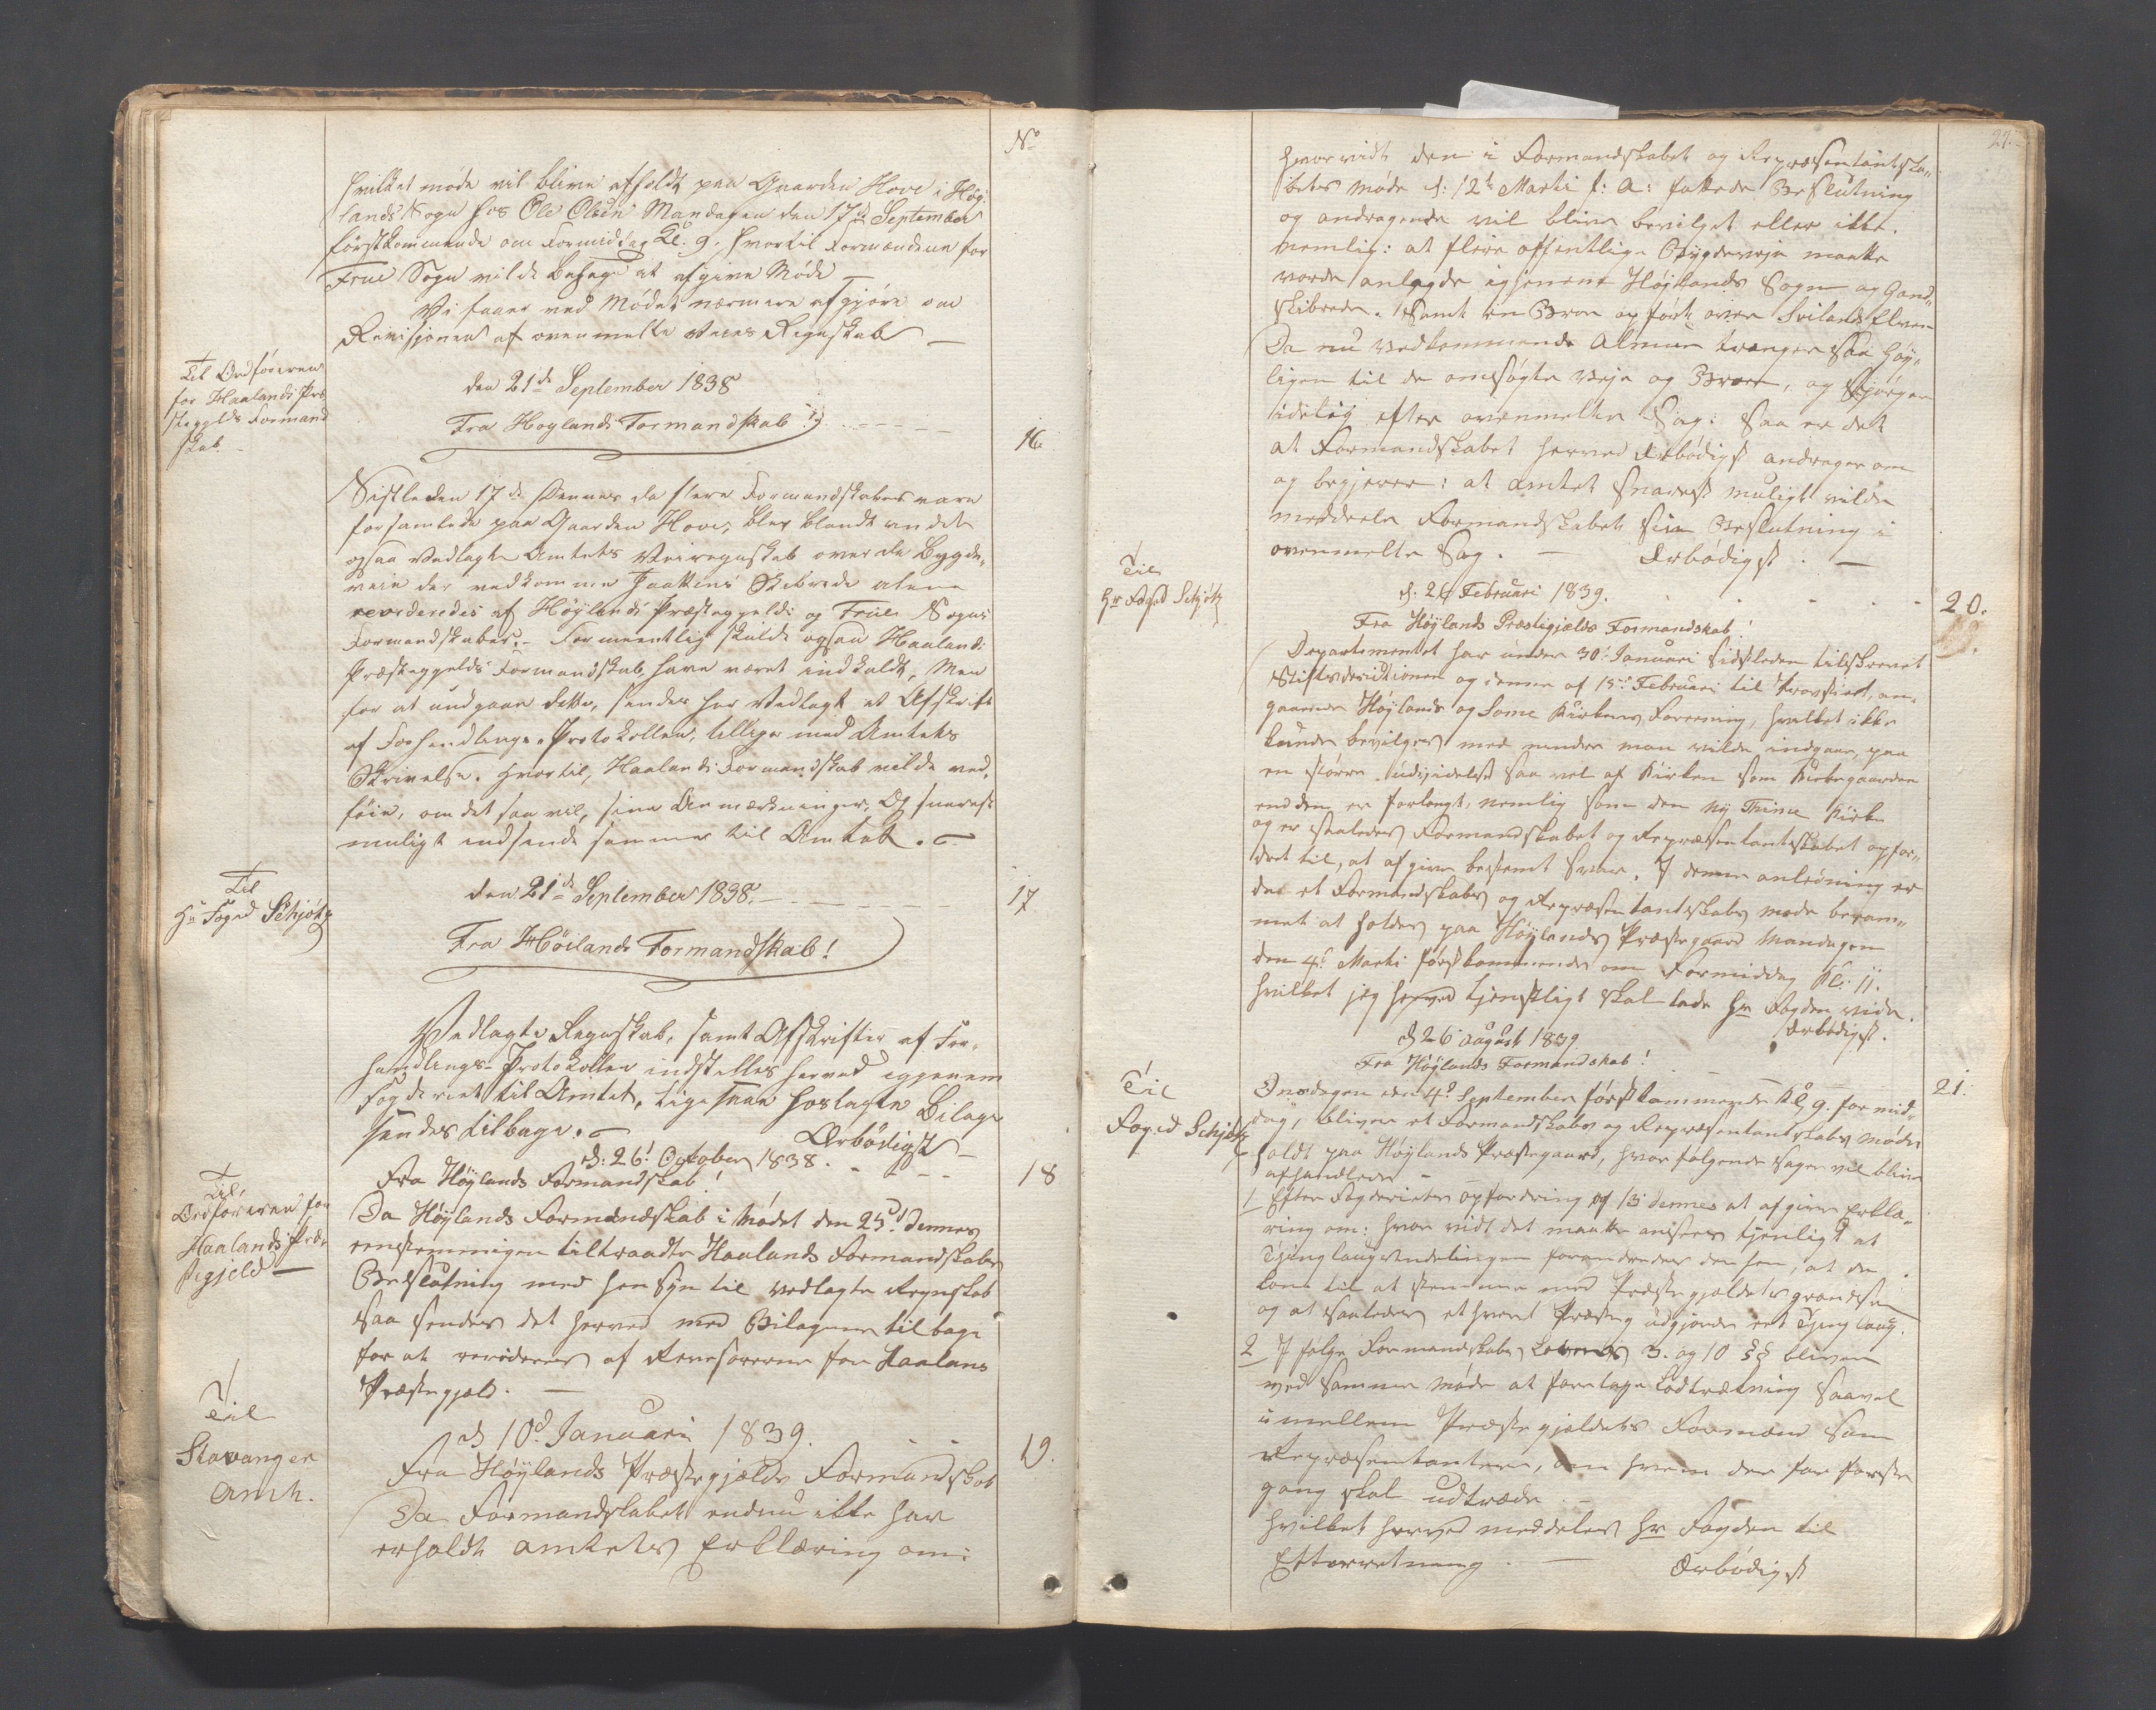 No
hvilket møde vil blive afholdt paa Gaarden Hove i Høy-
lands Sogn hos Ole Olsen Mandagen den 17de September
førstkommende om Formiddag Kl. 9. hvortil Formændene for
Frue Sogn vilde behage at afgive Møde —
Vi faaer ved Mødet nærmere afgjøre om
Revisjonen af ovenmelte Veies Regnskab —
Til Ordføreren
for Haalands Præ-
steggelds Formand
skab. —
den 21de September 1838
Fra Hoylands Formandskab
16
Sistleden 17de Dennes da flere Formandskaber vare
forsamlede paa Gaarden Hove, blev blandt andet
ogsaa Vedlagte Amtets Veiregnskab over de Bygde-
veie der vedkomme Jaattens Skibrede alene
revideredes af Høylands Præsteggelds og Frue Sogns
Formandskaber. – Formeentlig skulde ogsaa Haalands
Præsteggelds Formandskab have været indkaldt, Men
for at undgaae dette, sendes her Vedlagt et Afskrift
af Forhandlings-Protokollen, tillige med Amtets
Skrivelse. Hvortil, Haalands Formandskab vilde ved-
føie, om det saa vil, sine Anmærkninger, Og snarest
muligt indsende sammes til Amtet.
Til
Hr Foged Schjøtz
den 21de September 1838. —
17
Fra Höilands Formandskab!
Vedlagte Regnskab, samt Afskrifter af For-
handlings-Protokollen indstilles herved igjenem
Fogderiet til Amtet, ligesaae hoslagte Bilage
sendes tilbage.
Ærbødigst
d: 26: October 1838.
18
Til,
Ordføreren for
Haalands Præ-
stegjeld —
Fra Høylands Formandskab!
Da Høylands Formandskab i Mødet den 25d Dennes
eenstemmigen tiltraadte Haalands Formandskabs
Beslutning med hensyn til vedlagte Regnskab
saa sendes det herved med Bilagene tilbage
for at revideres af Revisorerne for Haalans
Præstegjeld. —
Til
Stavanger
Amt.
d 10d Januari 1839.
19.
Fra Høylands Præstegjælds Formandskab
Da Formandskabet endnu ikke har
erholdt Amtets Erklæring om:
27.
hvorvidt den i Formandskabet og Repræsentantska-
bets møde d: 12te Marti f: A: fattede Beslutning
og andragende vil blive bevilget eller ikke.
nemlig: at flere offentlige Bygdeveje maatte
vorde anlagde igjenem Høylands Sogn og Gand-
skibrede. Samt en Broe opført over Svilands Elven
Da nu Vedkommende Almue trænger saa høy-
ligen til de omsøgte Veje og Broer, og Spørger
idelig efter ovenmelte Sag: Saa er det
at Formandskabet herved Ærbødigst andrager om
og begjerer: at Amtet snarest muligt vilde
meddeele Formandskabet sin Beslutning i
ovenmelte Sag. — Ærbødigst. —
Til
Hr Foged Schjøtz
d: 26 Februari 1839.
20.
Fra Høylands Præstegjælds Formandskab!
Departementet har under 30. Januari sidstleden tilskrevet
Stiftsdirektionen og denne af 15d Februari til Provstiet, an-
gaaende Høylands og Some Kirkers Forening, hvilket ikke
kunde bevilges med mindre man vilde indgaae, paa
en større udvidelse saa vel af Kirken som Kirkegaarden
end den er forlangt, nemlig som den ny Thime Kirke
og er saaledes Formandskabet og Repræsentantskabet opfor-
dret til, at afgive bestemt Svar. I denne anledning er
da et Formandskabs og Repræsentantskabs møde beram-
met at holdes paa Høylands Præstegaard Mandagen
den 4d Marti førstkommende om Formiddag Kl: 11.
hvilket jeg herved tjenstligt skal lade Hr Fogden vide.
Ærbødigst.
d 26 august 1839
Fra Høylands Formandskab!
21.
Til
Foged Schjøtz
Onsdagen den 4d September førstkommende Kl 9. formid-
dag, bliver et Formandskabs og Repræsentantskabs møde
holdt paa Høylands Præstegaard, hvor følgende Sager vil blive
afhandlede —
1 Efter Fogderiets opfordring af 13 dennes at afgive Erklæ-
ring om: hvorvidt det maatte ansees tjenligt at
Thinglaugsindelingen forandredes den hen, at de
kom til at stemme med Præstegjældets grændser
og at saaledes ethvert Præsteg udgjorde eet Thinglaug.
2 I følge Formandskabs Lovens 3. og 10 §§ bliver
ved samme møde at foretage Lodtrækning saavel
imellem Præstegjeldets Formænd som
Repræsentantere, om hvem der for første
gang skal udtræde. —
hvilket herved meddeles Hr Fogden til
Efterretning. — Ærbødigst